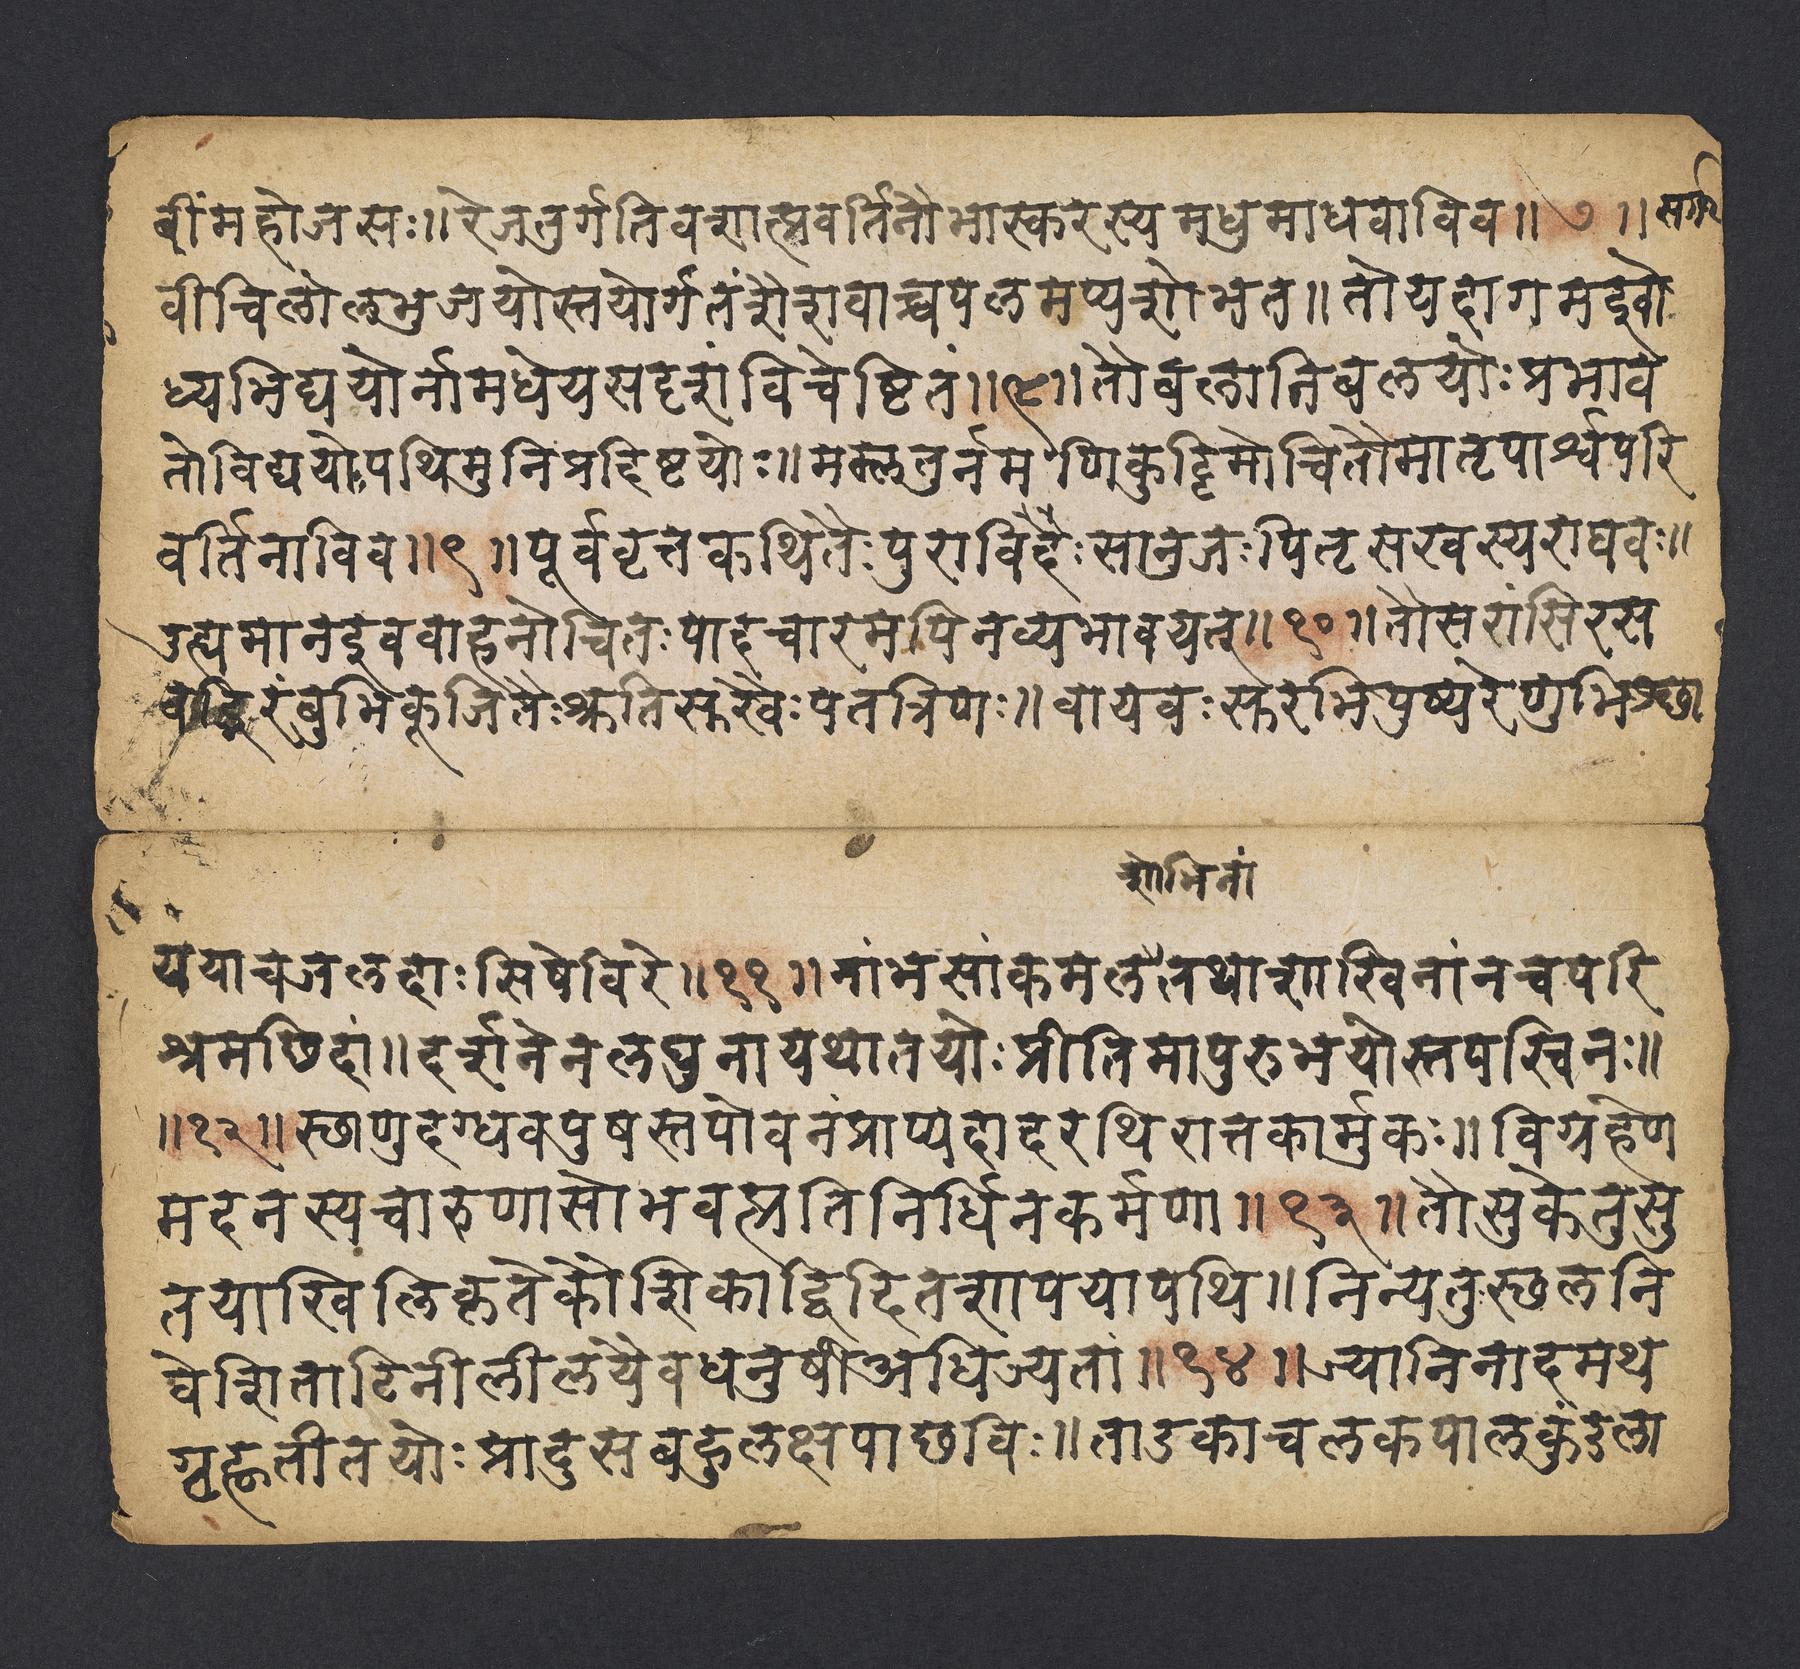 वीं महोजसः॥ रेजतुर्गतिवशात्प्रवर्तिनौ भास्करस्य मधुमाधवाविव॥ ७॥ सर्ग११
वीचिलोलभुजयोस्तयोर्गतं शैशवाच्चपलमप्यशोभत॥ तोयदागमइवो
ध्यभिद्ययोर्नामधेयसदृशं विचेष्टितं॥८॥ तौ बलातिबलयोः प्रभाव
तो विद्ययोः पथि मुनिप्रदिष्टयोः॥ मम्लतुर्न मणिकुट्टिमोचितौ मातृपार्श्वपरि
वर्तिनाविव॥ ९॥ पूर्ववृत्तकथितैः पुराविदैः सानुजः पितृसखस्य राघवः॥
उह्यमानइव वाहनोचितः पादचारमपि न व्यभावयत्॥ १०॥ तौ सरांसि रस
वद्भिरंबुभि कूजितैः श्रुतिसुखैः पतत्रिणः॥ वायवः सुरभिपुष्परेणुभिश्छा
शोभिनां
यया च जलदाः सिषेविरे॥ ११॥ नांभसां कमलै तथा शाखिनां न च परि
श्रमछिदां॥ दर्शनेन लघुना यथा तयोः प्रीतिमापुरुभयोस्तपस्विनः॥
॥१२॥ स्छाणुदग्धवपुषस्तपोवनं प्राप्य दादरथिरात्तकार्मुकः॥ विग्रहेण
मदनस्य चारुणा सोभवत्प्रतिनिर्धिनकर्मणा॥ १३॥ तौ सुकेतुसु
तया खिलिकृते कौशिकाद्विदितशापया पथि॥ निन्यतु स्छलनि
वेशिताटिनी लीलयैव धनुषी अधिज्यतां॥ १४॥ ज्यानिनादमथ
गृह्णती तयोः प्रादुस बहुलक्षपाछविः॥ ताडका चलकपालकुंडला